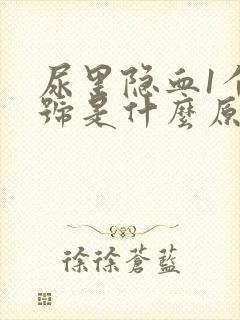 尿里隐血1个
號是什麼原
徐徐蒼藍